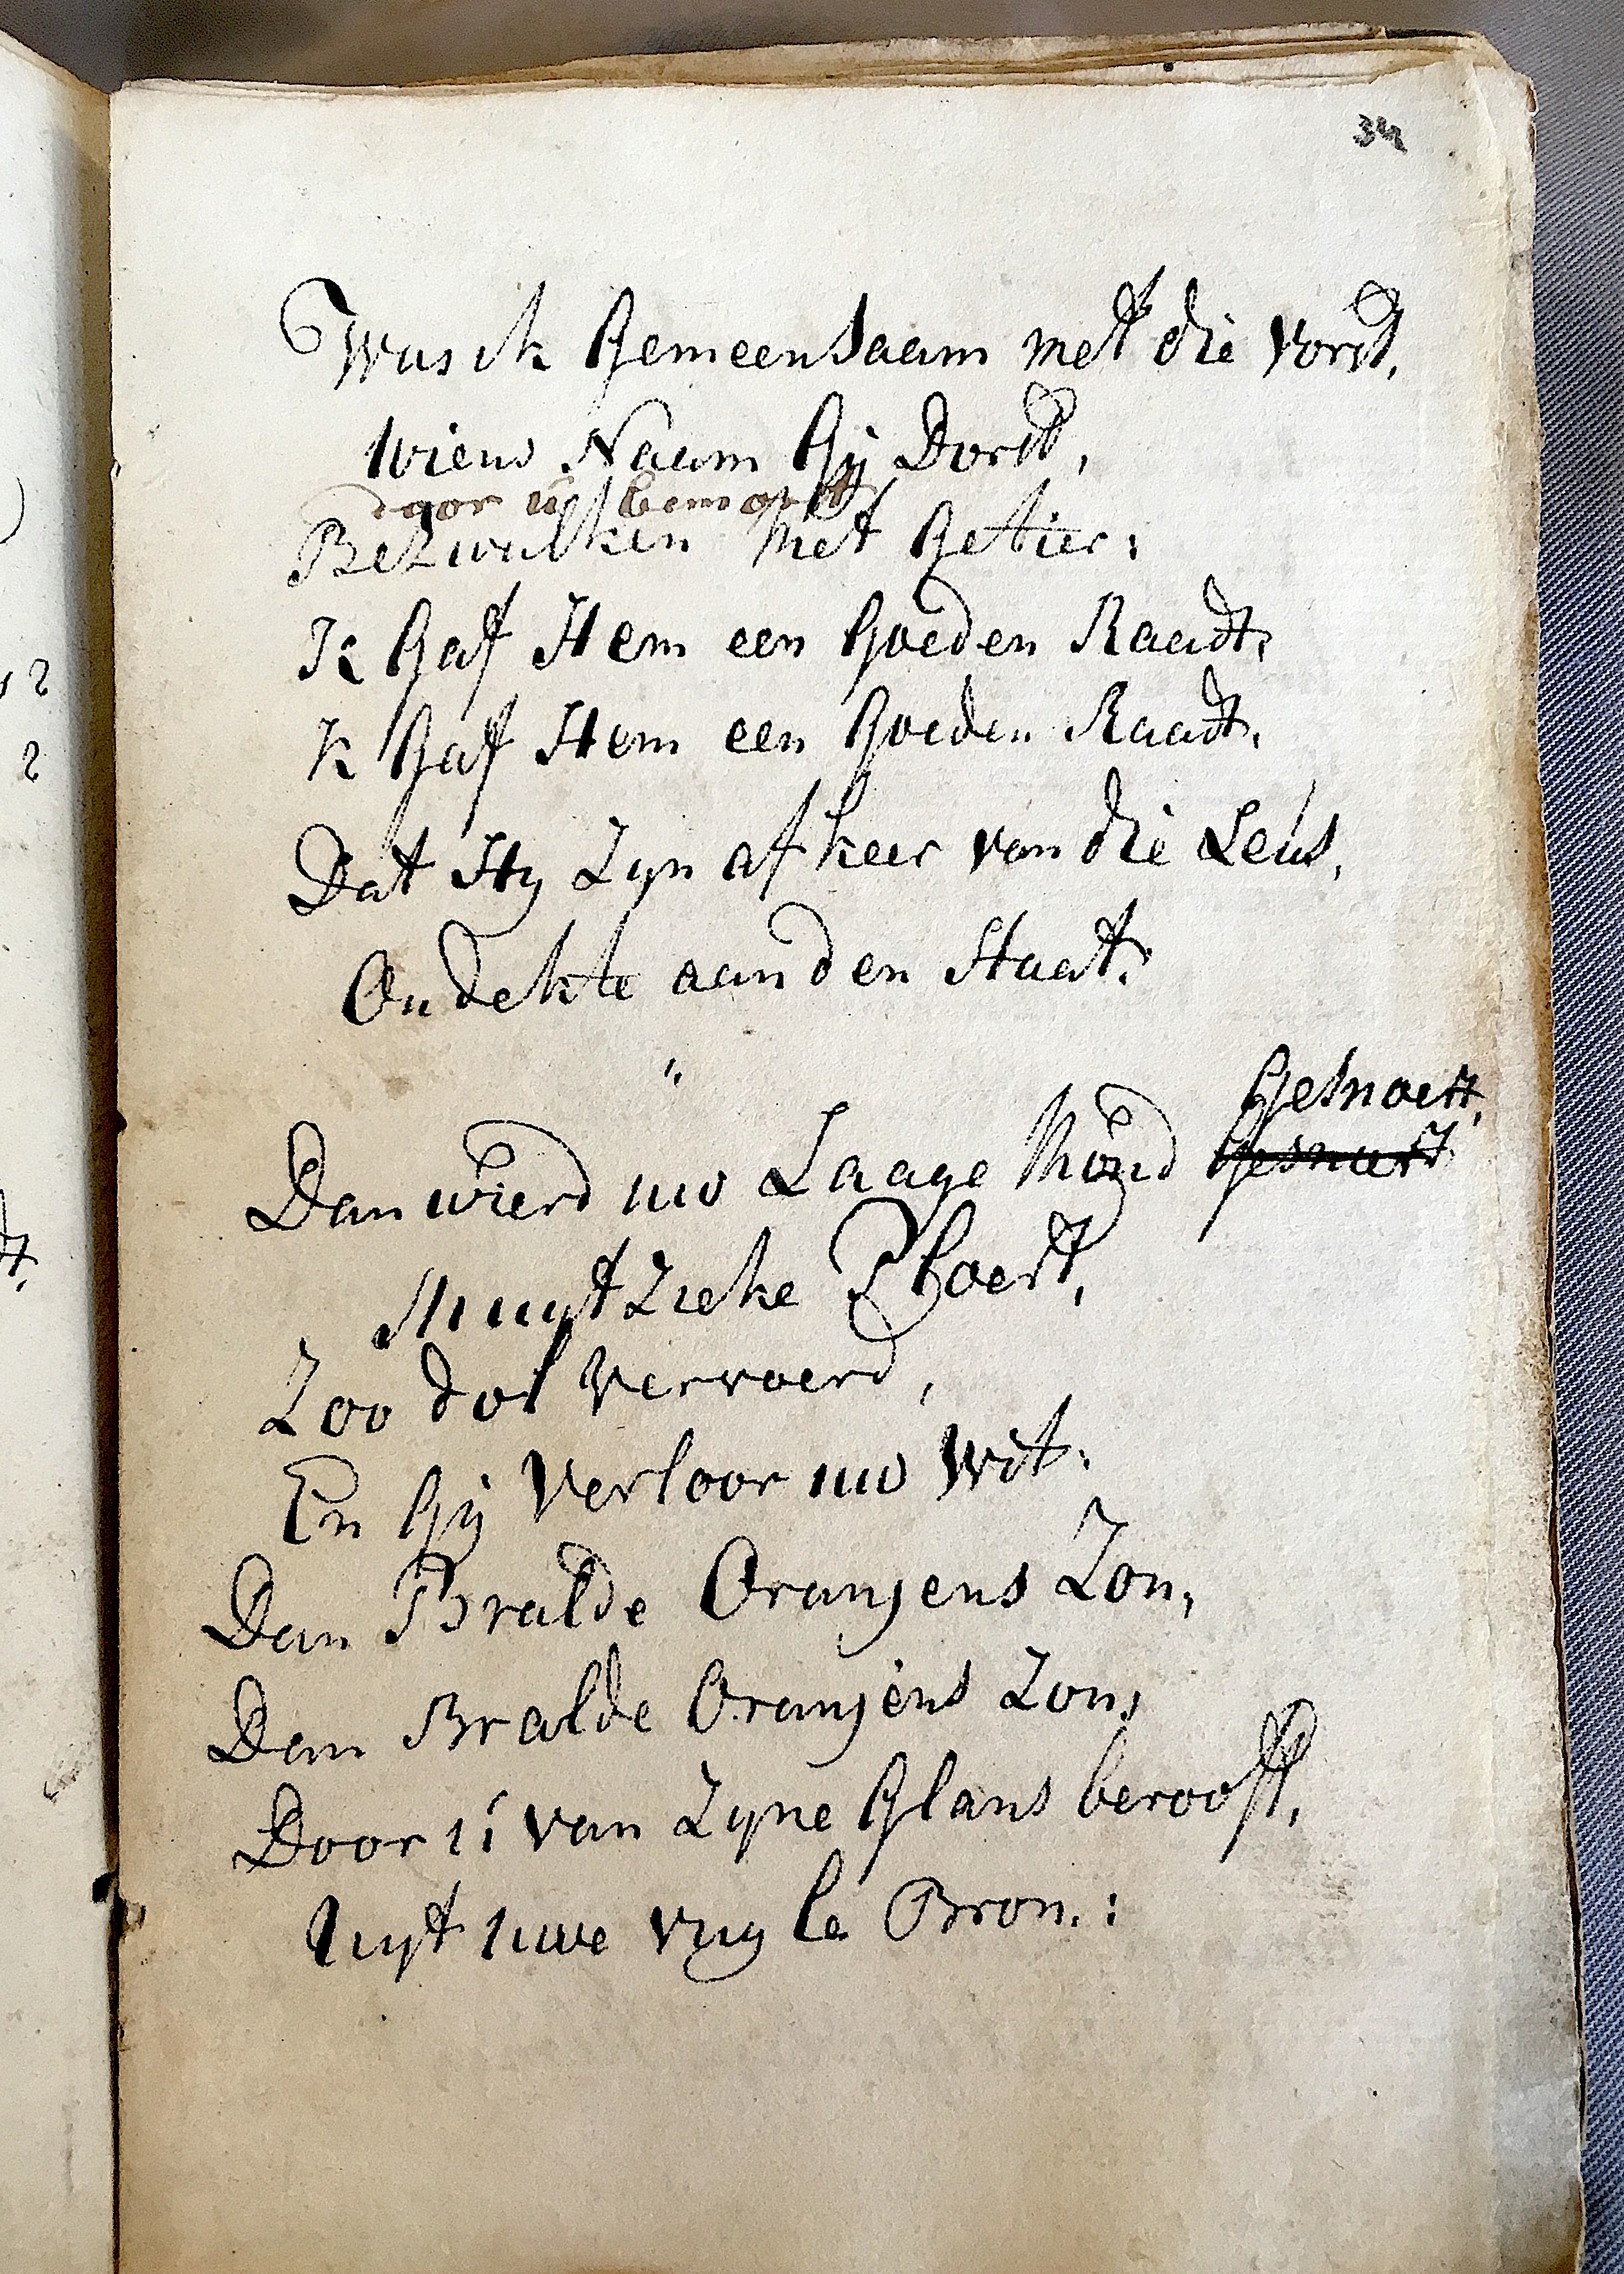 34
Was ik Gemeensaam met die vorst,
wiens Naam Gij Dorst,
door u bemorst
Bezwalken met Getier:
Ik Gaf Hem een Goeden Raadt,
k Gaf Hem een Goeden Raadt,
Dat Hy Zyn afkeer van die Leus,
Ondekte aan den Staat.
"
Gesnoert,
Dan wierd uw Laage Mond Gesnuert
Muytzieke Ploert,
Zoo dol vervoerd,
En Gij Verloor uw Wit:
Dan Bralde Oranjens Zon,
Dan Bralde Oranjens Zon,
Door u van Zyne Glans berooft,
Uuyt uwe vuyle Bron.: